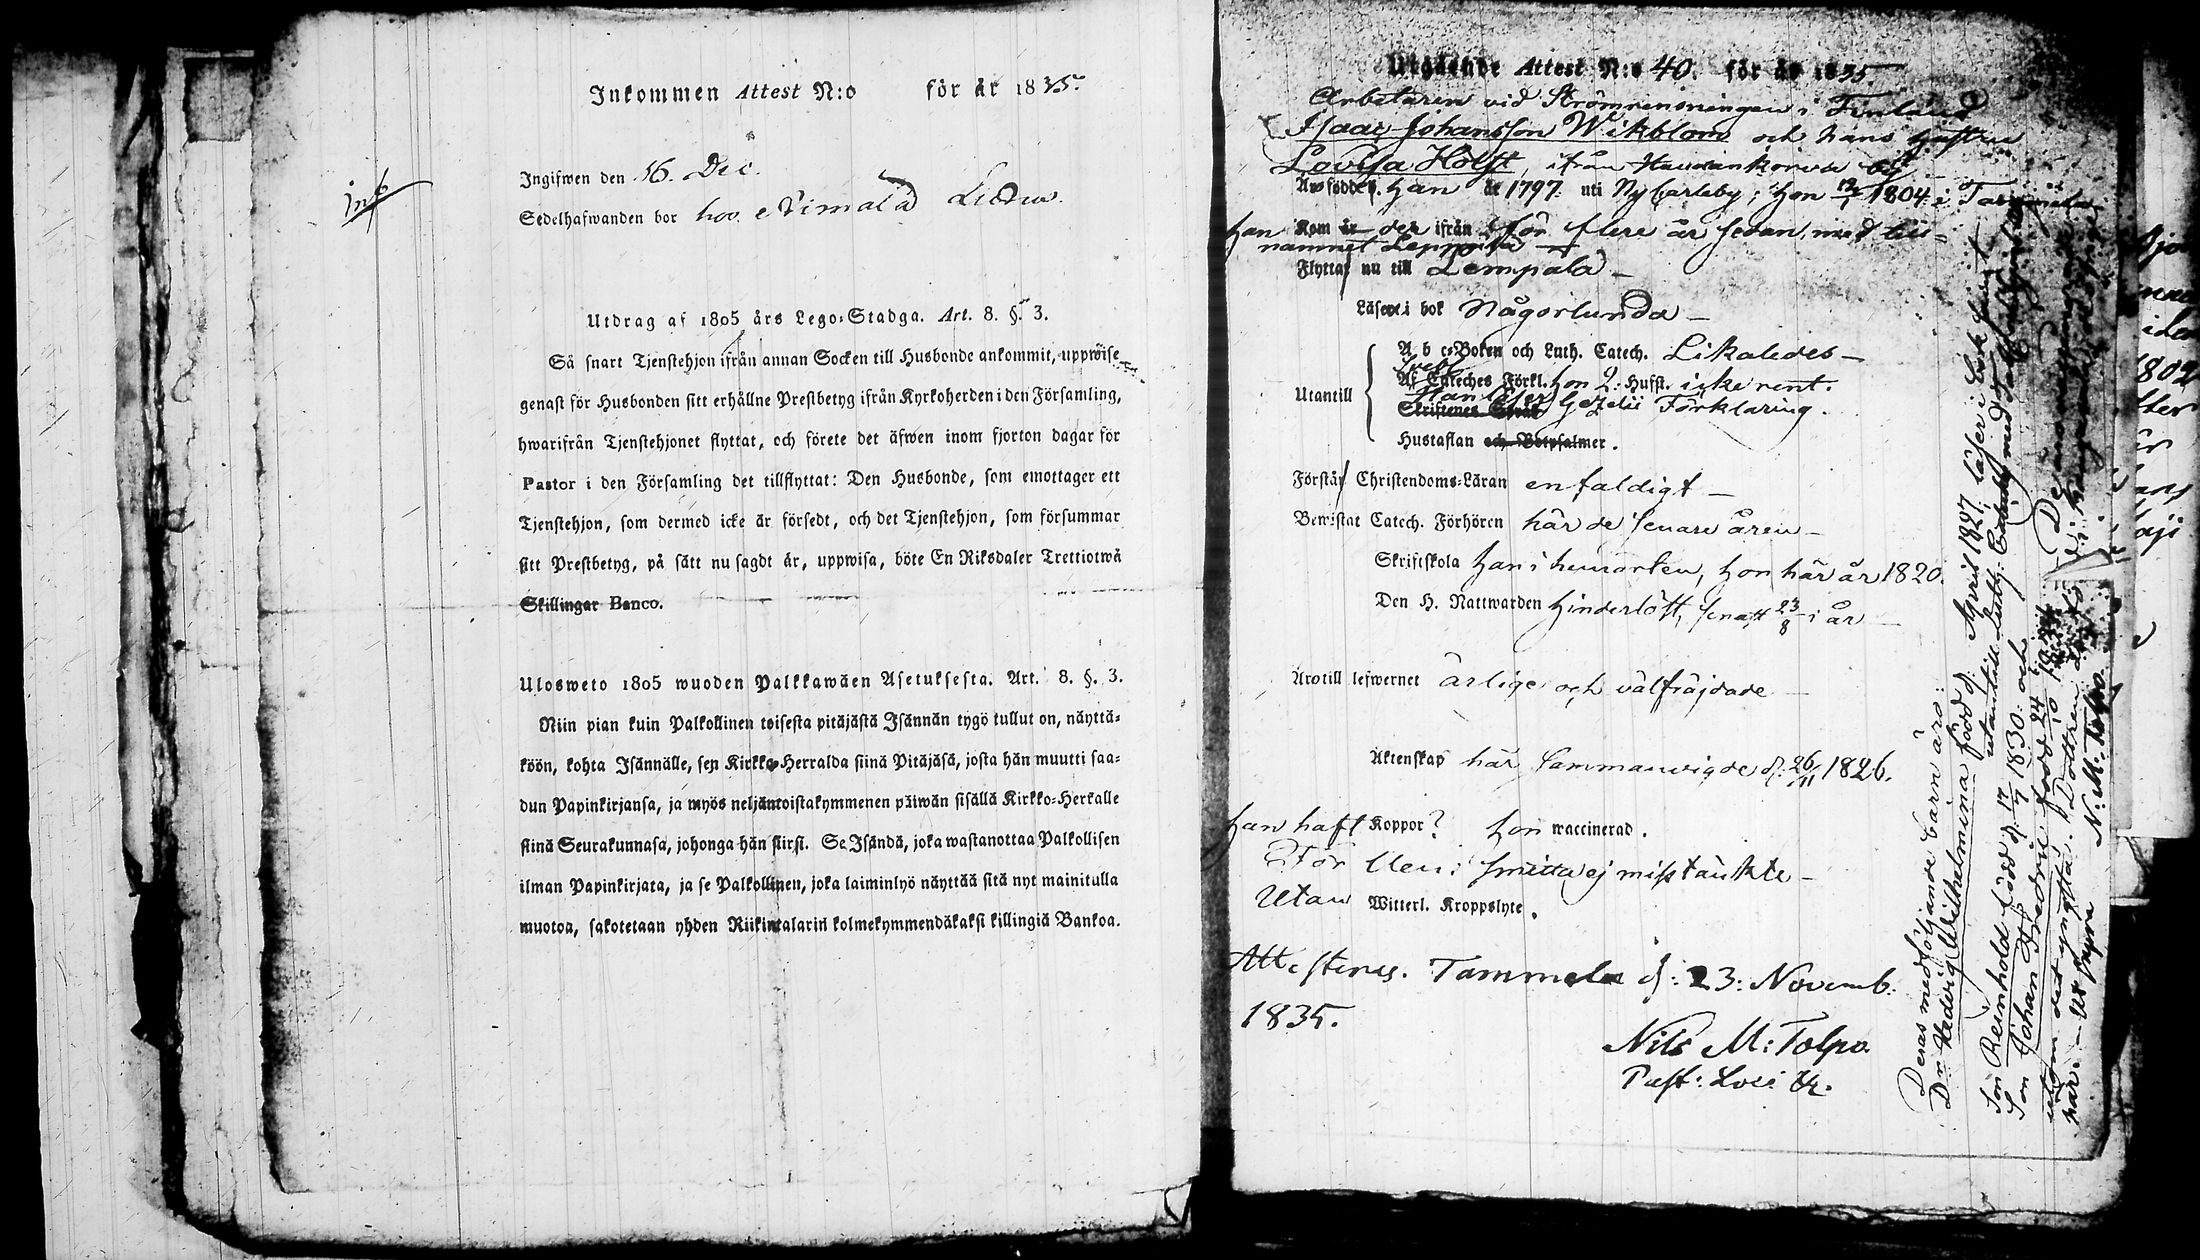 Inkommen Attest N:o för år 1835.
Ingifwen den 16. Dec.
inf
Sedelhafwanden bor hos
Utdrag af 1805 års Lego-Stadga. Art. 8. §. 3.
Så snart Tjenstehjon ifrån annan Socken till Husbonde ankommit, uppwise
genast för Husbonden sitt erhållne Prestbetyg ifrån Kyrkoherden i den Församling,
hwarifrån Tjenstehjonet flyttat, och förete det äfwen inom fjorton dagar för
Pastor i den Församling det tillflyttat: Den Husbonde, som emottager ett
Tjenstehjon, som dermed icke är försedt, och det Tjenstehjon, som försummar
sitt Prestbetyg, på sätt nu sagdt är, uppwisa, böte En Riksdaler Trettiotwå
Skillingar Banco.
Ulosweto 1805 wuoden Palkkawäen Asetuksesta. Art. 8. §. 3.
Niin pian kuin Palkollinen toisesta pitäjästä Isännän tygö tullut on, näyttä-
köön, kohta Isännälle, sen Kirkko-Herralda siinä Pitäjäsä, josta hän muutti saa-
dun Papinkirjansa, ja myös neljäntoistakymmenen päiwän sisällä Kirkko-Herralle
siinä Seurakunnasa, johonga hän siirsi. Se Isändä, joka wastanottaa Palkollisen
ilman Papinkirjata, ja se Palkollinen, joka laiminlyö näyttää sitä nyt mainitulla
muotoa, sakotetaan yhden Riikintalarin kolmekymmendäkaksi killingiä Bankoa.
Utgående Attest N:o 40. för år 1835
Arbetaren vid Strömrensningen i Finland
Isaac Johansson Wikblom och hans hustru
Lovisa Holst, ifrån by
Äro födde, han år 1797. uti Ny Carleby; hon 12/1 1804 i Tammela
han Kom är der ifrån för flere år sedan, med till-
namnet
Flytta nu till Lempälä
Läsa i bok Någorlunda
Utantill
A b c-Boken och Luth. Catech. Likaledes
Af Cateches Förkl. hon 2. Hufst. icke rent.
Skriftenes Språk Han läser Gezelii Förklaring.
Hustaflan och Botpsalmer.
Förstår Christendoms-Läran enfaldigt
Bewistat Catech. Förhören här de senare åren
Skriftskola han i hemorten, hon här år 1820.
Den H. Nattwarden hinderlöst, senast 23/8 i år
Äro till lefwernet ärlige och välfräjdade
Äktenskap här Sammanvigde d. 26/11 1826.
han haft Koppor? hon waccinerad.
För Ven: smitta ej misstänkte
Utan Witterl. Kroppslyte.
Attesteras. Tammela d: 23: Novemb:
1835.
Nils M: Tolpo
Past: Loci
Deras medföljande barn äro:
Dr Hedvig Wilhelmina född d. April 1827, läser i bok
utantill Luth.
Son Reinhold född d. 17/7 1830. och
Son Johan Fredric född 24/10
utom det yngsta. Dottren
här. Ut supra N: M: Tolpo